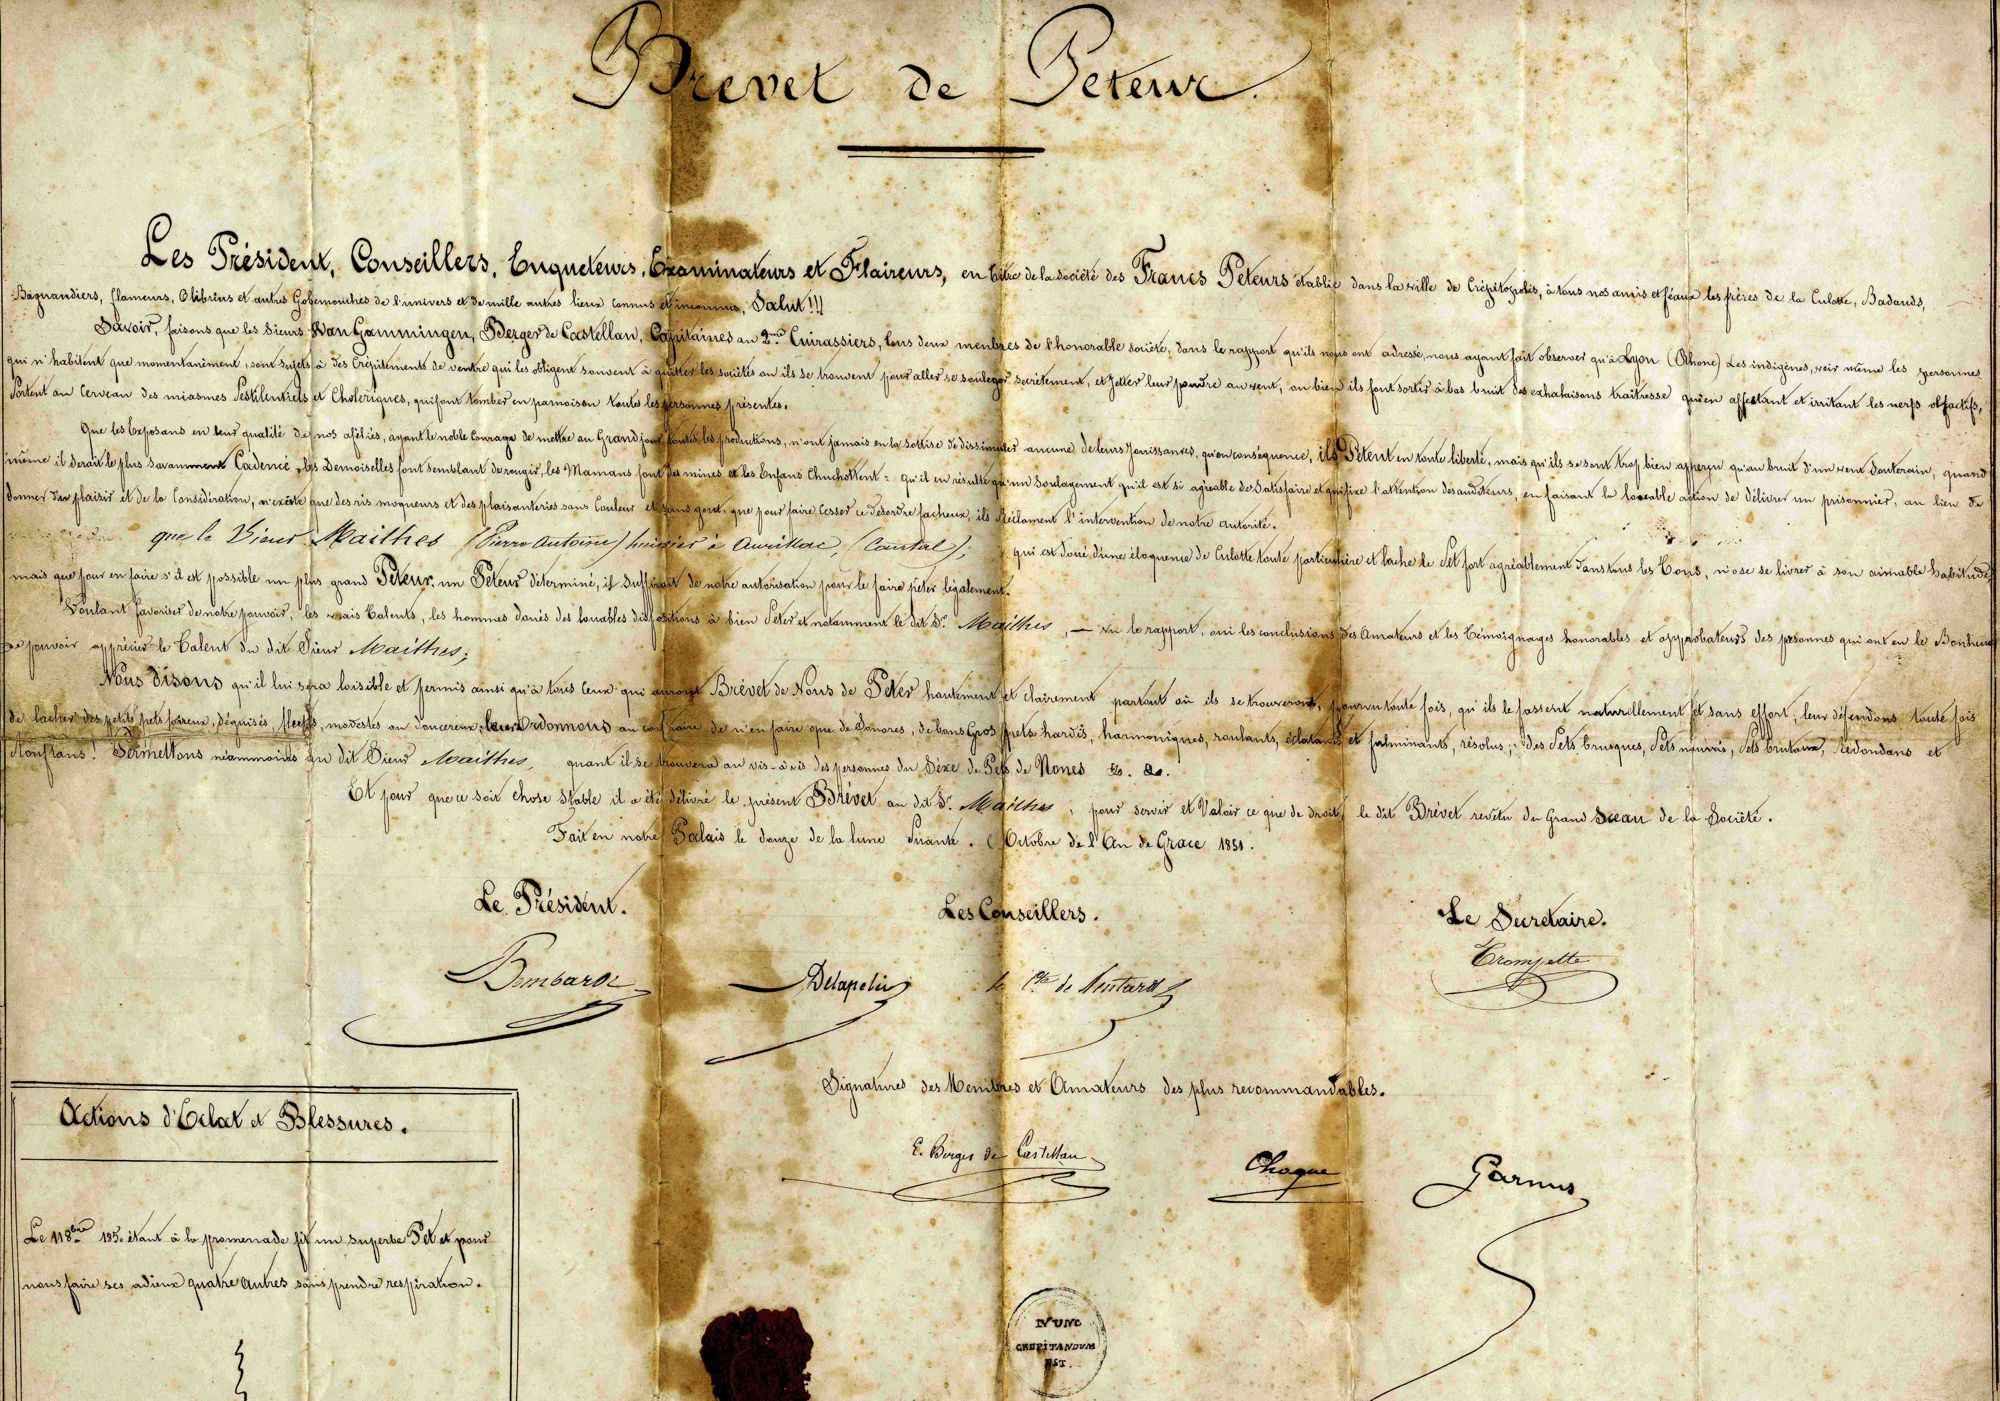 Brevet de Peteur.
Les Président, Conseillers, Enqueteurs, Examinateurs et Flaireurs, en titre de la Société des Francs Peteurs établie dans la ville de Crépitopolis, à tous nos amis et féaux les frères de la Culotte, Badauds,
Baguandiers, flameurs, Olibrius et autres Gobemouches de l'univers et de mille autres lieux connus et inconnus, Salut!!!
Savoir, faisons que les Sieurs Van Gammingen, Berger de Castellan, Capitaines au 2me Cuirassiers, tous deux membres de l'honorable société, dans le rapport qu'ils nous ont adressé, nous ayant fait observer qu'à Lyon (Rhone) Les indigènes, voir même les personnes
qui n'habitent que momentanément, sont sujets à des Crépitements de ventre qui les obligent souvent à quitter les sociétés ou ils se trouvent pour aller se soulager secrètement, et jetter leur poudre au vent, ou bien ils font sortir à bas bruit des exhalaisons traitresse qu'en affectant et irritant les nerfs olfactifs,
Portent au Cerveau des miasmes Pestilentiels et Cholériques, qui font tomber en pamoison toutes les personnes présentes.
Que les Exposans en leur qualité de nos afeliés, ayant le noble Courage de mettre au Grand jour toutes les productions, n'ont jamais eu la Sottise de dissimuler aucune de leurs Jouissances, qu'en conséquence, ils Pètent en toute liberté, mais qu'ils se sont trop bien apperçu qu'au bruit d'un vent Souterain, quand
même il serait le plus savamment Cadencé, les Demoiselles font semblant de rougir, les Mamans font des mines et les Enfans Chuchottent: qu'il en résulte qu'un Soulagement qu'il est si agréable de Satisfaire et qui fixe l'attention des auditeurs, en faisant la louable action de délivrer un prisonnier, au lieu de
donner du plaisir et de la Considération, n'excite que des ris moqueurs et des plaisanteries sans Couleur et sans gout, que pour faire Cesser ce désordre facheux, ils Réclament l'intervention de notre autorité.
que le Sieur Mailhes (Pierre Antoine) huissier à Aurillac, (Cantal); qui est doué d'une éloquence de Culotte toute particulière et lache le Pet fort agréablement dans tous les Tons, n'ose se livrer à son aimable habitude,
mais que pour en faire s'il est possible un plus grand Peteur, un Peteur déterminé, il Suffirait de notre autorisation pour le faire peter légalement.
Voulant favoriser de notre pouvoir, les vrais Talents, les hommes doués des louables dispositions à bien Peter et notamment le dit Sr. Mailhes, — vu le rapport, oui les conclusions des Amateurs et les témoignages honorables et approbateurs des personnes qui ont eu le Bonheur
de pouvoir apprécier le Talent du dit Sieur Mailhes;
Nous Disons qu'il lui sera loisible et permis ainsi qu'à tous Ceux qui auront Brévet de Nous de Peter hautement et clairement partout où ils se trouveront, pourvu toute fois, qu'ils le fassent naturellement et sans effort, leur défendons toute fois
de lacher des petits pets foireux, déguisés, modestes ou doucereux, leur ordonnons au contraire de n'en faire que de Sonores, de bons Gros pets hardis, harmoniques, roulants, éclatants et fulminants, résolus, des Pets brusques, Pets nourris, Pets brutaux, Redondans et
Ronflans! Permettons néammoins au dit Sieur Mailhes, quant il se trouvera au vis-à-vis des personnes du Sexe de Pets de Nones &. &.
Et pour que ce soit chose Stable il a été délivré le présent Brévet au dit Sr. Mailhes, pour servir et Valoir ce que de droit, le dit Brévet revêtu du Grand Sceau de la Société.
Fait en notre Palais le douze de la lune Puante. Octobre de l'An de Grace 1851.
Le Président.
Les Conseillers.
Le Secretaire.
Bombarde
Delapelin
le Cte de
Trompette
Signatures des Membres et Amateurs des plus recommandables.
E. Berger de Castellan
Choque
Garnus
Actions d'Eclat et Blessures.
Le 11 8bre 1850 étant à la promenade fit un superbe Pet et pour
nous faire ses adieux quatre autres sans prendre respiration.
NUNC
CREPITANDUM
EST.